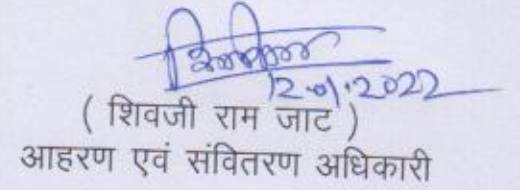 12.01.2022
( शिवजी राम जाट )
आहरण एवं संवितरण अधिकारी